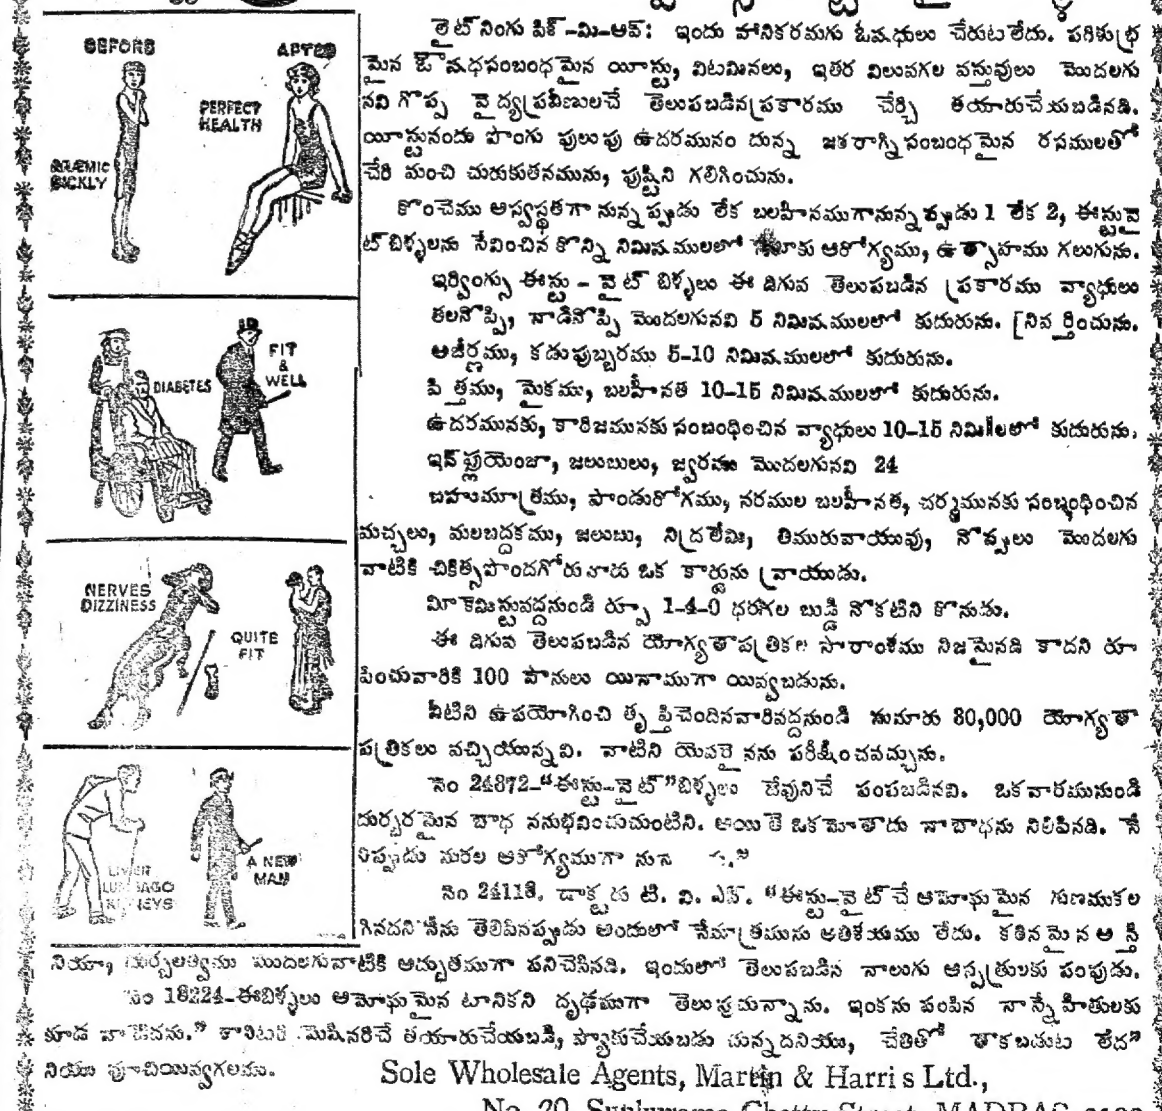 BEFORE
AFTER
PERFECT
HEALTH
ANÆMIC
SICKLY
DIABETES
FIT
&
WELL
NERVES
DIZZINESS
QUITE
FIT
LIVER
LUMBAGO
KIDNEYS
A NEW
MAN
లైట్ నింగు పిక్-మి-అప్: ఇందు హానికరమగు ఓషధులు చేరుటలేదు. పరిశుభ్ర
మైన ఔషధసంబంధమైన యీస్టు, విటమినలు, ఇతర విలువగల వస్తువులు మొదలగు
నవి గొప్ప వైద్యప్రవీణులచే తెలుపబడినప్రకారము చేర్చి తయారుచేయబడినది.
యీస్టునందు పొంగు పులుపు ఉదరమునం దున్న జఠరాగ్నిసంబంధమైన రసములతో
చేరి మంచి చురుకుతనమును, పుష్టిని గలిగించును.
కొంచెము అస్వస్థతగా నున్నప్పుడు లేక బలహీనముగానున్నప్పుడు 1 లేక 2, ఈస్టువై
ట్ బిళ్ళలను సేవించిన కొన్ని నిమిషములలో ఆరోగ్యము, ఉత్సాహము గలుగును.
ఇర్వింగ్సు ఈస్టు - వైట్ బిళ్ళలు ఈ దిగువ తెలుపబడిన ప్రకారము వ్యాధులు
తలనొప్పి, నాడినొప్పి మొదలగునవి 5 నిమిషములలో కుదురును. [నివర్తించును.
అజీర్ణము, కడుపుబ్బరము 5-10 నిమిషములలో కుదురును.
పిత్తము, మైకము, బలహీనత 10-15 నిమిషములలో కుదురును.
ఉదరమునకు, కారిజమునకు సంబంధించిన వ్యాధులు 10-15 కుదురును.
ఇన్‌ఫ్లుయెంజా, జలుబులు, జ్వరము మొదలగునవి 24
బహుమూత్రము, పాండురోగము, నరముల బలహీనత, చర్మమునకు సంబంధించిన
మచ్చలు, మలబద్దకము, జలుబు, నిద్రలేమి, తిమురువాయువు, నొప్పులు మొదలగు
వాటికి చికిత్సపొందగోరువారు ఒక కార్డును వ్రాయుడు.
మీకెమిస్టువద్దనుండి రూపా 1-4-0 ధరగల బుడ్డి నొకటిని కొనుడు.
ఈ దిగువ తెలుపబడిన యోగ్యతాపత్రికల సారాంశము నిజమైనది కాదని రూ
పించువారికి 100 పౌనులు యినాముగా యివ్వబడును.
వీటిని ఉపయోగించి తృప్తిచెందినవారివద్దనుండి సుమారు 80,000 యోగ్యతా
పత్రికలు వచ్చియున్నవి. వాటిని యెవరైనను పరీక్షించవచ్చును.
నెం 24872-"ఈస్టు-వైట్"బిళ్ళలు దేవునిచే పంపబడినవి. ఒకవారమునుండి
దుర్భరమైన బాధ ననుభవించుచుంటిని. అయితె ఒకమోతాదు నాబాధను నిలిపినది. నే
నిప్పుడు ఆరోగ్యముగా
నెం 24118. డాక్టరు టి. వి. ఎస్. "ఈస్టు-వైట్ చే ఆమోఘమైన గుణముకల
గినదని నీను తెలిపినప్పుడు అందులో నేమాత్రమును అతిశయము లేదు. కఠినమైన ఆస్తీ
నియా, దుర్బలత్వము మొదలగువాటికి అద్భుతముగా పనిచేసినది. ఇందులో తెలుపబడిన నాలుగు ఆస్పత్రులకు పంపుడు.
నెం 18224-ఈబిళ్ళలు ఆమోఘమైన టానికని దృఢముగా తెలుపుచున్నాను. ఇంకను పంపిన నాస్నేహితులకు
కూడ మెషినరిచే తయారుచేయబడి, ప్యాకుచేయబడు చున్నదనియు, చేతితో తాకబడుట లేద"
నియు పూచియివ్వగలము.
Sole Wholesale Agents, Martin & Harris Ltd.,